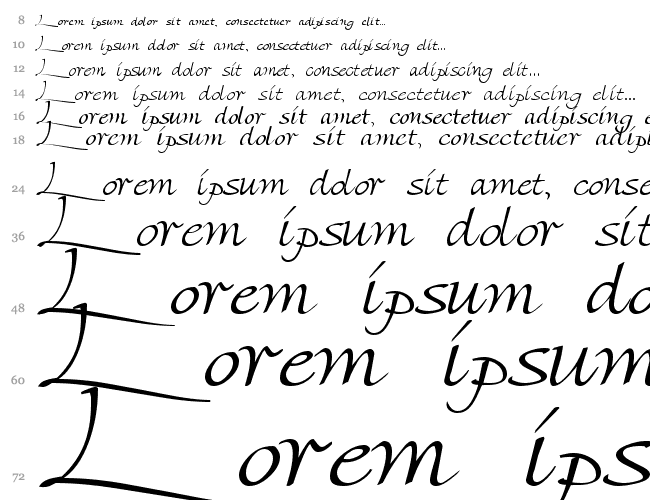 8 Lorem ipsum dolor sit amet, consectetuer adipiscing elit...
10 Lorem ipsum dolor sit amet, consectetuer adipiscing elit...
12 Lorem ipsum dolor sit amet, consectetuer adipiscing elit...
14 Lorem ipsum dolor sit amet, consectetuer adipiscing elit...
16 Lorem ipsum dolor sit amet, consectetuer adipiscing e
18 Lorem ipsum dolor sit amet, consectetuer adip
24 Lorem ipsum dolor sit amet, conse
36 Lorem ipsum dolor sit
48 Lorem ipsum do
60 Lorem ipsum
72 Lorem ips